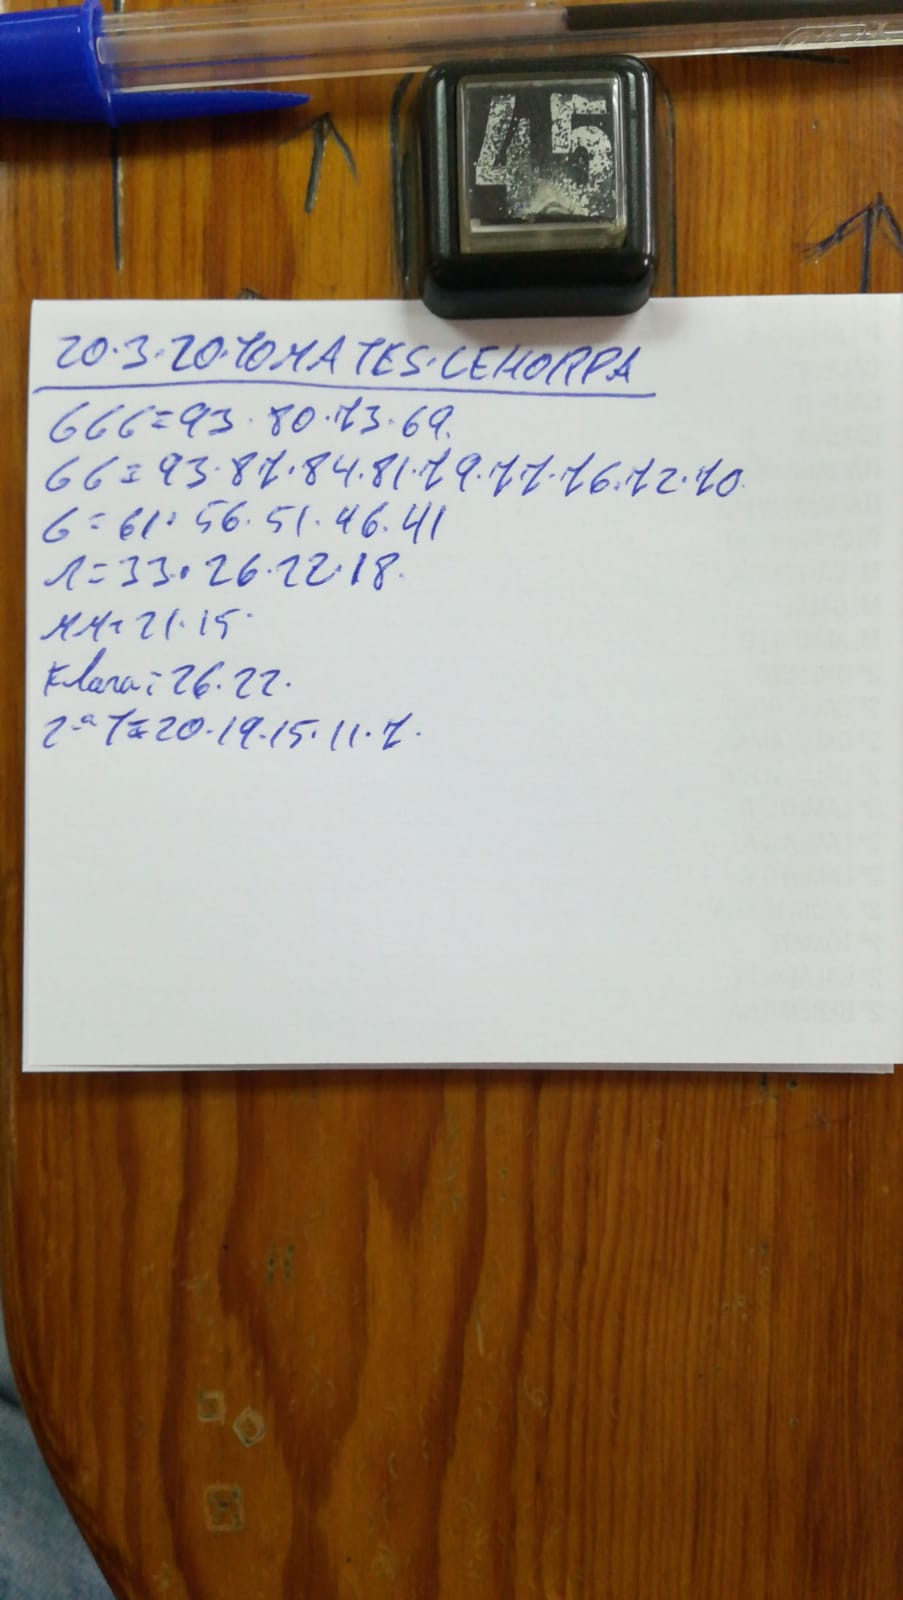 45
20.3.20.TOMATES.CEHORPA
GGG=93.80.73.69.
GG=93.87.84.81.79.77.76.72.70.
G=61.56.51.46.41
M=33.26.22.18.
MM=21.15.
Flora=26.22.
2-ª T=20.19.15.11.7.